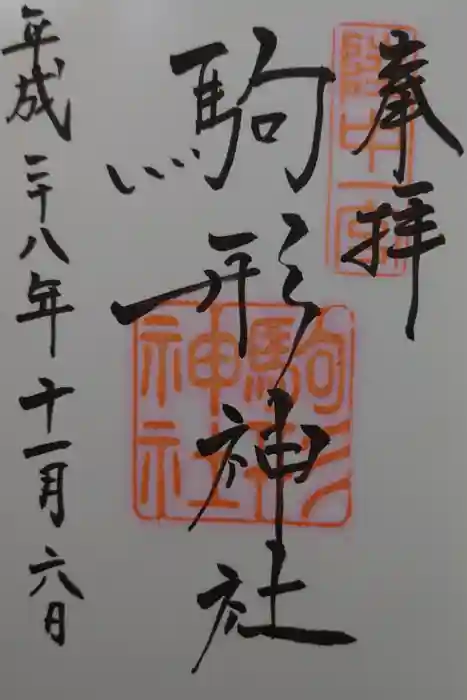 奉拝
陸中一宮
駒形神社
駒形神社
平成二十八年十一月六日